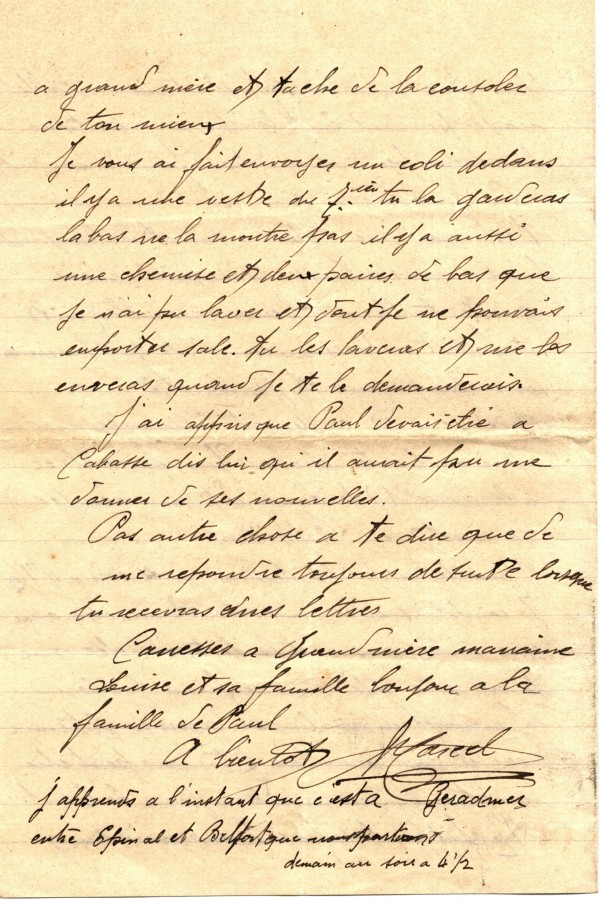 a grand mère et tache de la consoler
de ton mieux
Je vous ai fait envoyer un coli dedans
il y a une veste du tu la garderas
labas ne la montre pas il y a aussi
une chemise et deux paires de bas que
je n'ai pu laver et dont je ne pouvais
emporter sale. tu les laveras et me les
enveras quand je te le demanderais.
J'ai appris que Paul devait être a
Cabasse dis lui qu'il aurait pu me
donner de ses nouvelles.
Pas autre chose a te dire que de
me repondre toujours de suite lorsque
tu recevras mes lettres
Caresses a Grand mère marraine
Louise et sa famille bonjour a la
famille de Paul
A bientot Marcel
j'apprends a l'instant que c'est a Geradmer
entre Epinal et Belfort que nous partions
demain au soir a 4 1/2